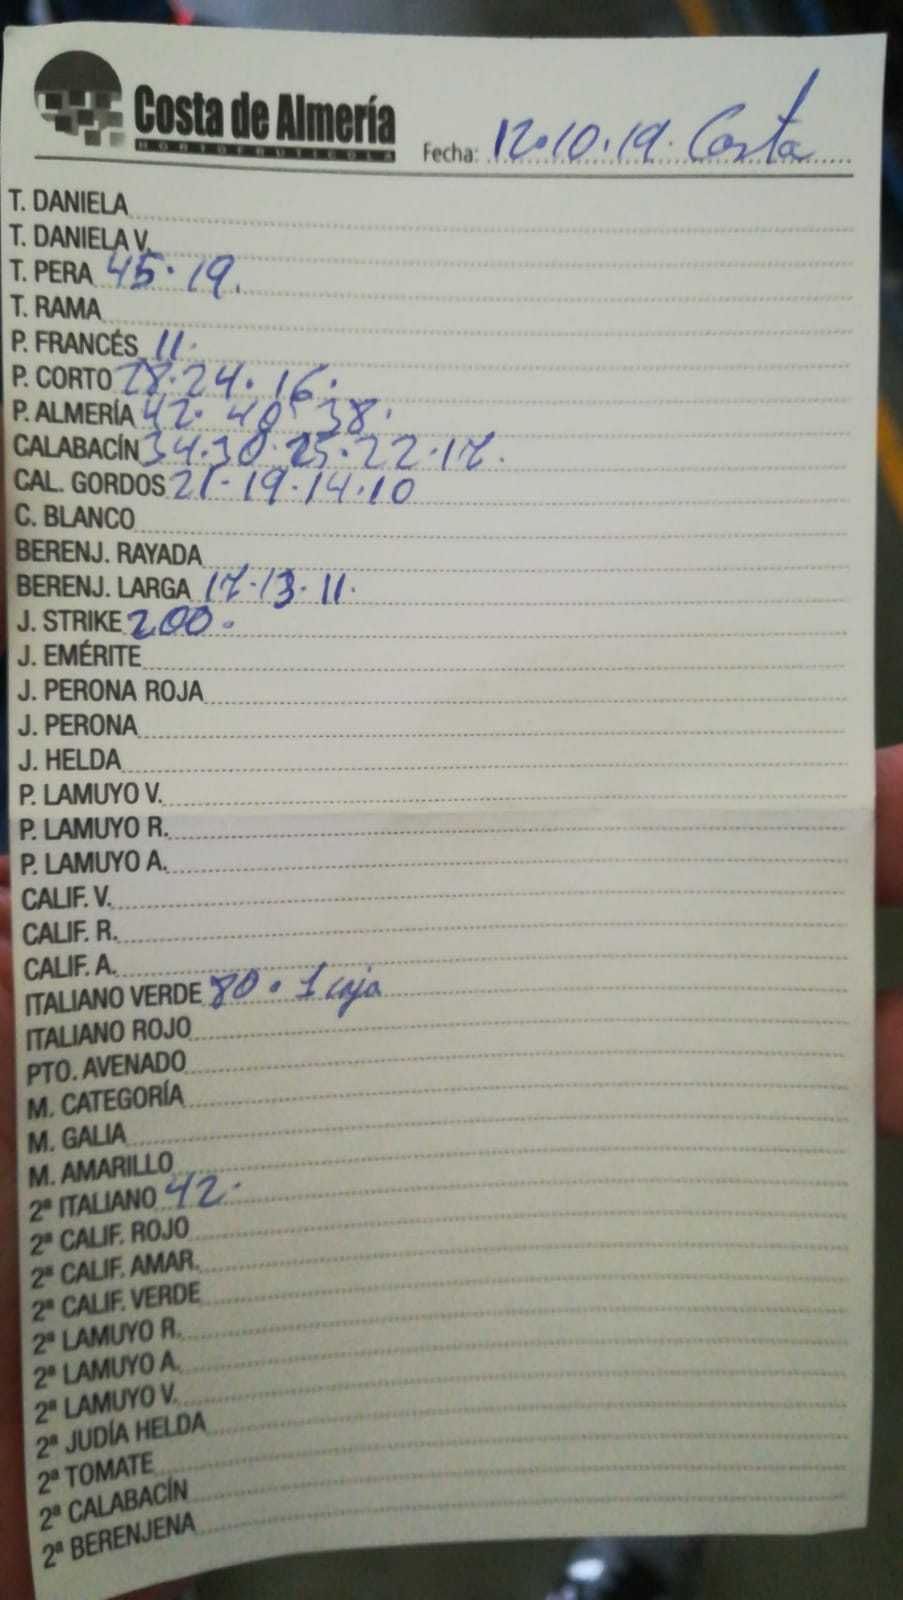 Costa de Almería
HORTOFRUTICOLA
Fecha: 12.10.19. Costa
T. DANIELA
T. DANIELA V.
T. PERA 45.19.
T. RAMA
P. FRANCÉS 11.
P. CORTO 28.24.16.
P. ALMERÍA 42.40.38.
CALABACÍN 34.30.25.22.17.
CAL. GORDOS 21.19.14.10
C. BLANCO
BERENJ. RAYADA
BERENJ. LARGA 17.13.11.
J. STRIKE 200.
J. EMÉRITE
J. PERONA ROJA
J. PERONA
J. HELDA
P. LAMUYO V.
P. LAMUYO R.
P. LAMUYO A.
CALIF. V.
CALIF. R.
CALIF. A.
ITALIANO VERDE 80.1 caja
ITALIANO ROJO
PTO. AVENADO
M. CATEGORÍA
M. GALIA
M. AMARILLO
2ª ITALIANO 42.
2ª CALIF. ROJO
2ª CALIF. AMAR.
2ª CALIF. VERDE
2ª LAMUYO R.
2ª LAMUYO A.
2ª LAMUYO V.
2ª JUDÍA HELDA
2ª TOMATE
2ª CALABACÍN
2ª BERENJENA